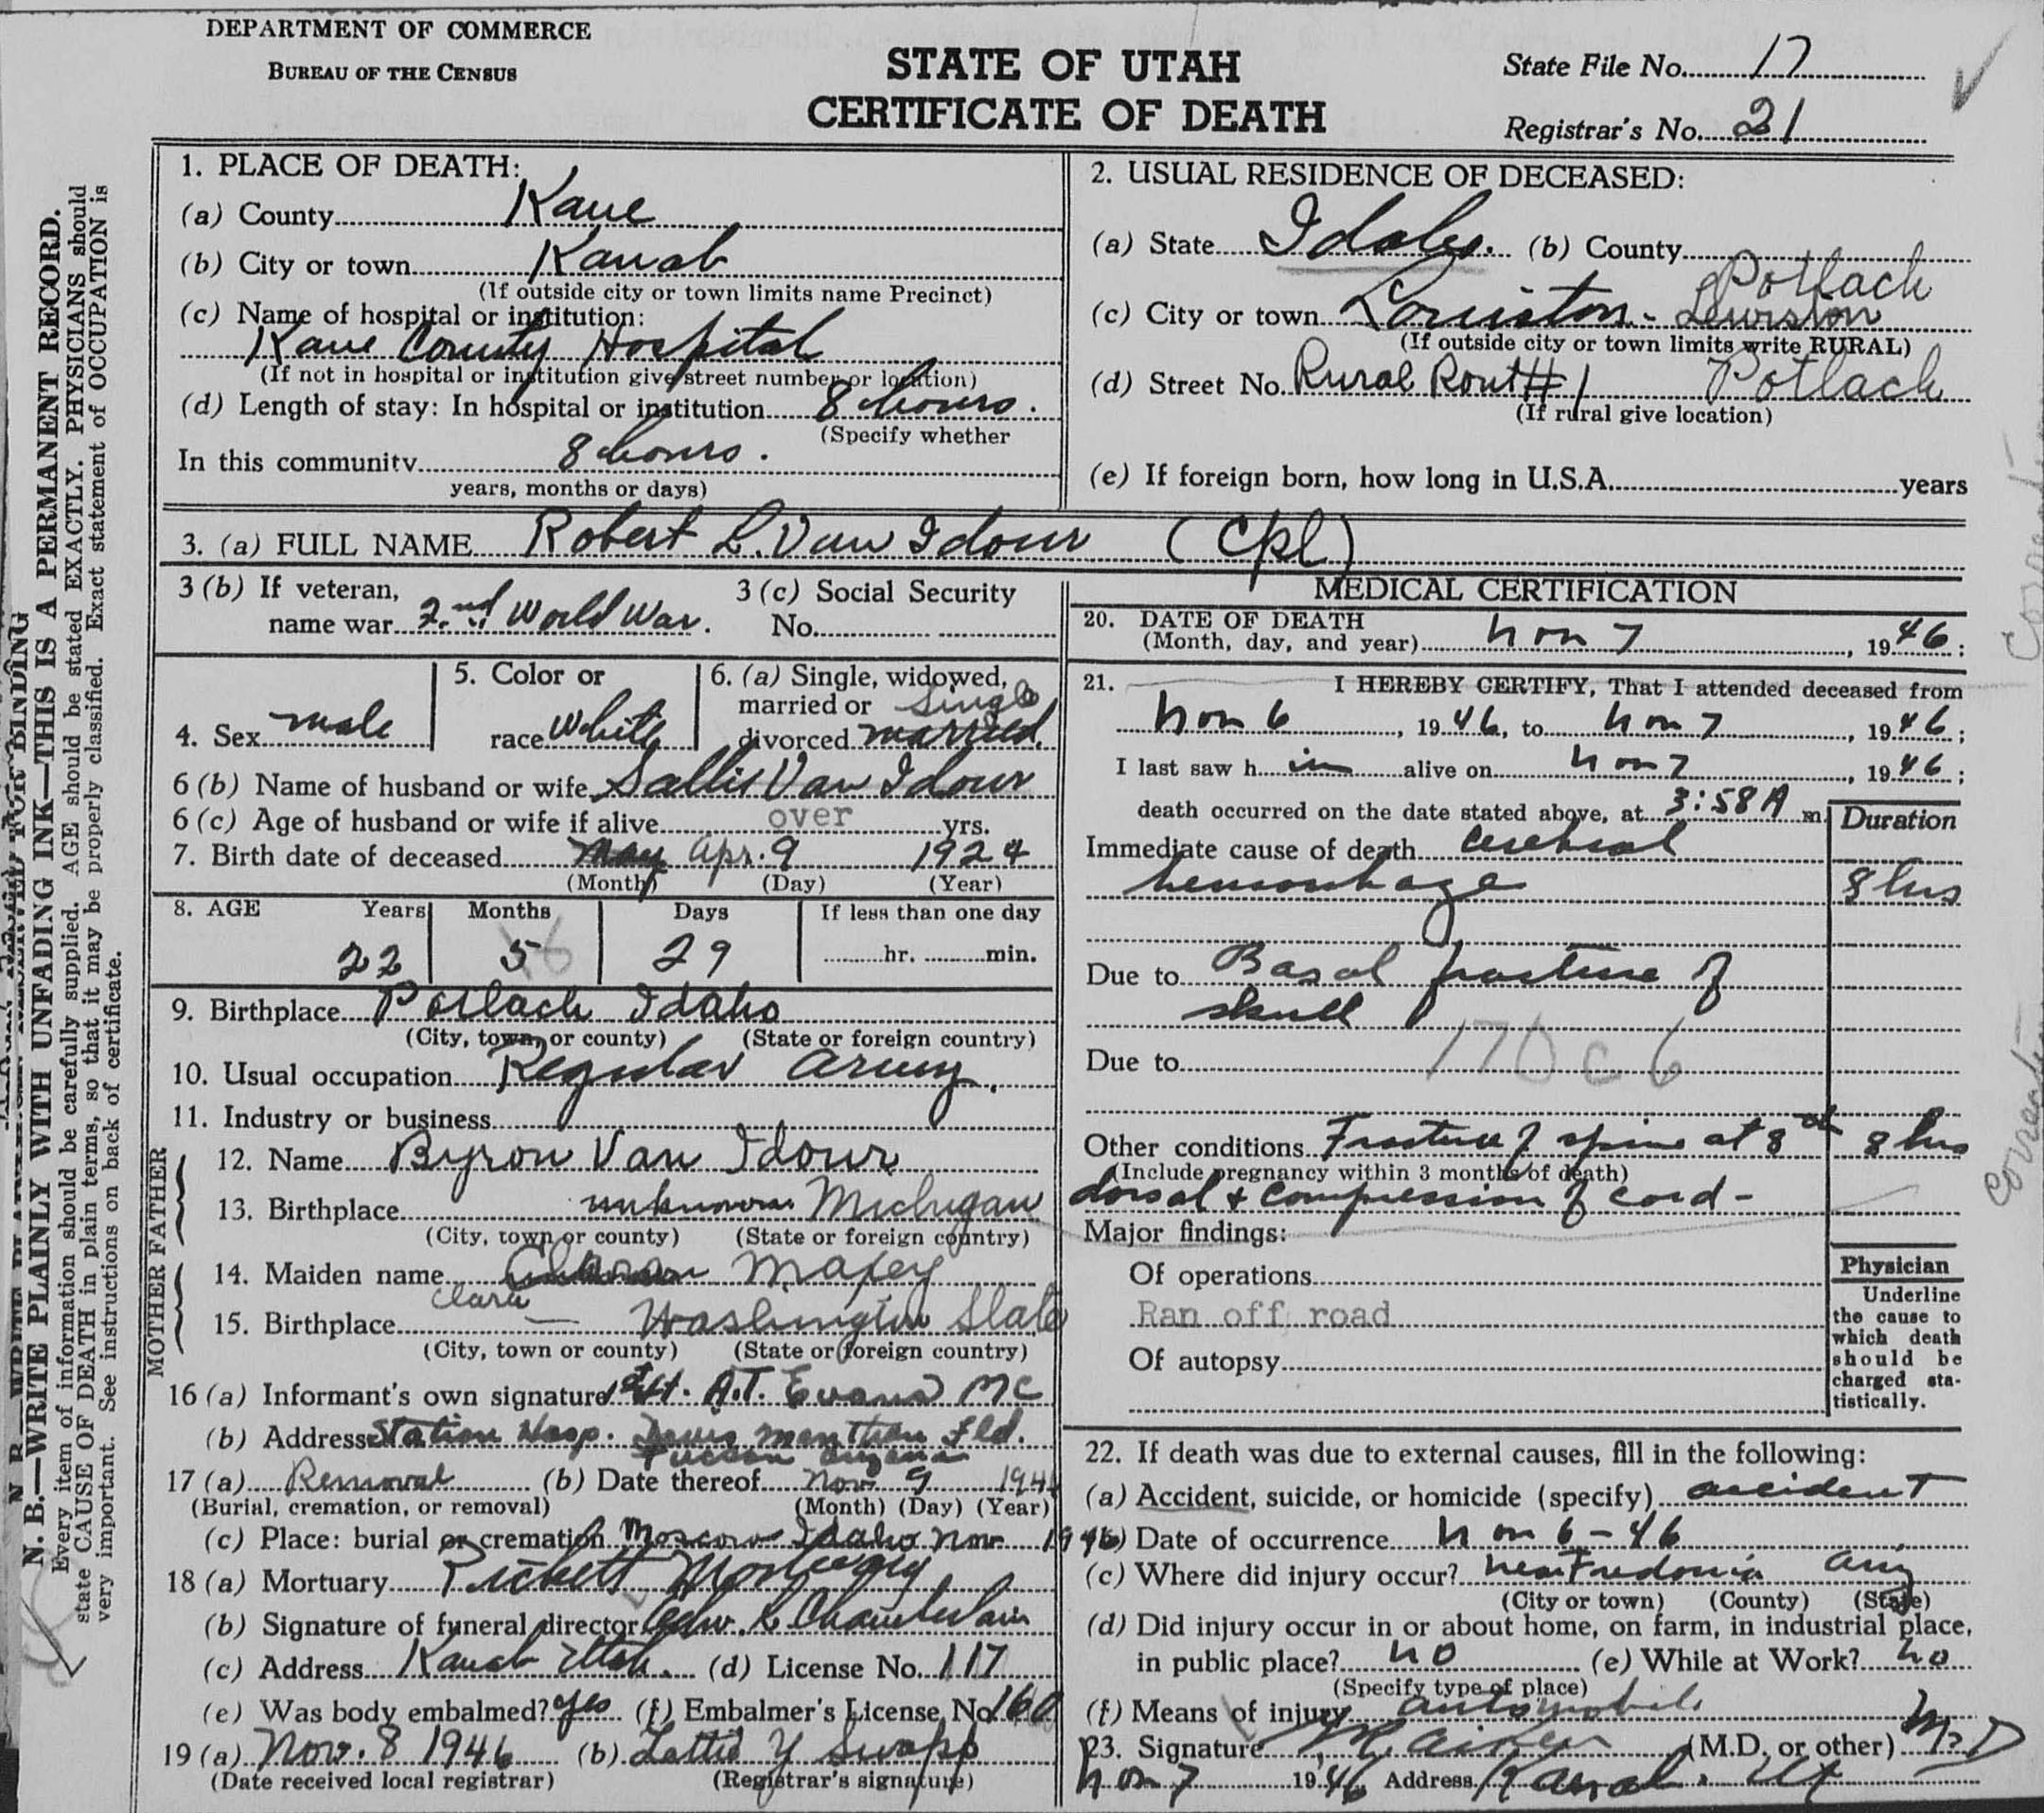 DEPARTMENT OF COMMERCE
BUREAU OF THE CENSUS
STATE OF UTAH
CERTIFICATE OF DEATH
State File No. 17
Registrar's No. 21
N. B.—WRITE PLAINLY WITH UNFADING INK—THIS IS A PERMANENT RECORD.
Every item of information should be carefully supplied. AGE should be stated EXACTLY. PHYSICIANS should
state CAUSE OF DEATH in plain terms, so that it may be properly classified. Exact statement of OCCUPATION is
very important. See instructions on back of certificate.
1. PLACE OF DEATH:
(a) County Kane
(b) City or town Kanab
(If outside city or town limits name Precinct)
(c) Name of hospital or institution:
Kane County Hospital
(If not in hospital or institution give street number or location)
(d) Length of stay: In hospital or institution 8 hours.
(Specify whether
In this community 8 hours.
years, months or days)
2. USUAL RESIDENCE OF DECEASED:
(a) State Idaho. (b) County
Potlach
(c) City or town Lewiston - Lewiston
(If outside city or town limits write RURAL)
(d) Street No. Rural Rout #1 Potlach
(If rural give location)
(e) If foreign born, how long in U.S.A. years
3. (a) FULL NAME Robert L. Van Idour (Cpl)
3 (b) If veteran,
name war 2nd World War.
3 (c) Social Security
No.
4. Sex male
5. Color or
race White
6. (a) Single, widowed,
married or Single
divorced married.
6 (b) Name of husband or wife Sallie Van Idour
6 (c) Age of husband or wife if alive over yrs.
7. Birth date of deceased May Apr. 9 1924
(Month) (Day) (Year)
8. AGE Years Months Days If less than one day
22 5 6 29 hr. min.
9. Birthplace Potlach Idaho
(City, town, or county) (State or foreign country)
10. Usual occupation Regular Army.
11. Industry or business
FATHER
12. Name Byron Van Idour
13. Birthplace unknown Michigan
(City, town or county) (State or foreign country)
MOTHER
14. Maiden name Maxey
Clara
15. Birthplace — Washington State
(City, town or county) (State or foreign country)
16 (a) Informant's own signature 1st Lt. A.T. Evans MC
(b) Address Station Hosp. Davis Monthan Fld.
Tucson Arizona
17 (a) Removal (b) Date thereof Nov 9 1946
(Burial, cremation, or removal) (Month) (Day) (Year)
(c) Place: burial or cremation Moscow Idaho Nov 1946
18 (a) Mortuary Pickett Mortuary
(b) Signature of funeral director Edw. L. Chamberlain
(c) Address Kanab Utah. (d) License No. 117
(e) Was body embalmed? yes (f) Embalmer's License No 160
19 (a) Nov. 8 1946 (b) Lettie Y Swapp
(Date received local registrar) (Registrar's signature)
MEDICAL CERTIFICATION
20. DATE OF DEATH
(Month, day, and year) Nov 7, 1946;
21. I HEREBY CERTIFY, That I attended deceased from
Nov 6, 1946, to Nov 7, 1946;
I last saw h im alive on Nov 7, 1946;
death occurred on the date stated above, at 3:58 A m.
Duration
Immediate cause of death cerebral
hemorrhage 8 hrs
Due to Basal fracture of
skull
Due to 170 c 6
Other conditions Fracture of spine at 8th 8 hrs
(Include pregnancy within 3 months of death)
dorsal & compression of cord -
Major findings:
Of operations
Ran off road
Of autopsy
Physician
Underline
the cause to
which death
should be
charged sta-
tistically.
22. If death was due to external causes, fill in the following:
(a) Accident, suicide, or homicide (specify) accident
(b) Date of occurrence Nov 6 - 46
(c) Where did injury occur? near Fredonia Ariz
(City or town) (County) (State)
(d) Did injury occur in or about home, on farm, in industrial place,
in public place? no (e) While at Work? no
(Specify type of place)
(f) Means of injury automobile
23. Signature Aiken (M.D. or other) M.D
Nov 7 1946 Address Kanab, Ut